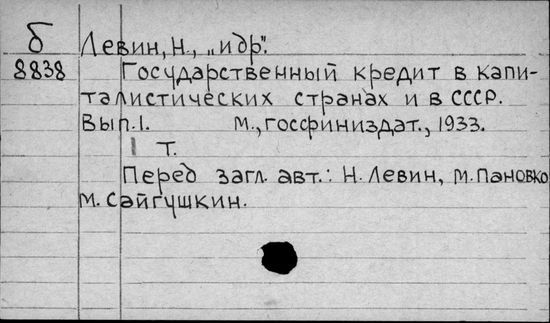 б Левин, Н., „и др".
8838 Государственный кредит в капи-
талистических странах и в СССР.
Вып.1. М., госфиниздат., 1933.
1 т.
Перед загл. авт.: Н. Левин, М. Пановко
М. Сайгушкин.